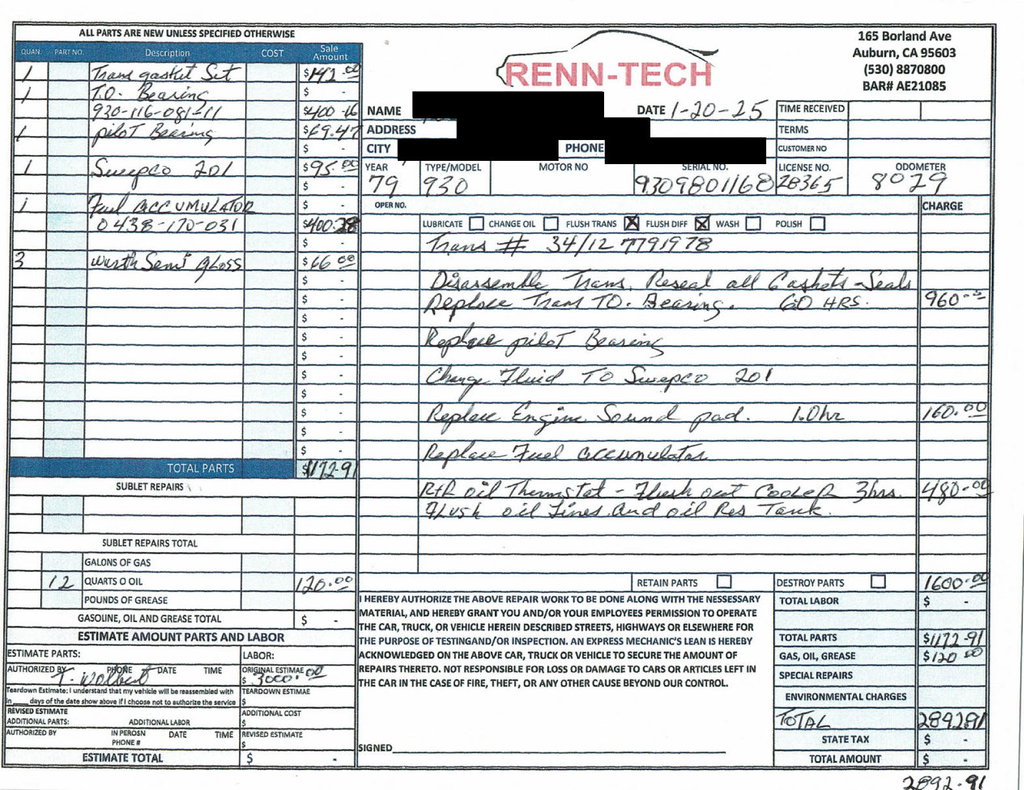 ALL PARTS ARE NEW UNLESS SPECIFIED OTHERWISE
QUAN. PART NO. Description COST Sale Amount
1 Trans gasket Set $142.00
1 T.O. Bearing $ -
930-116-081-11 $400-16
1 pilot Bearing $69.47
$ -
1 Swepco 201 $95.00
$ -
1 Fuel ACCUMULATOR $ -
0438-170-031 $400.28
$ -
3 wurth Semi Gloss $66.00
$ -
$ -
$ -
$ -
$ -
$ -
$ -
$ -
$ -
$ -
TOTAL PARTS $1172-91
SUBLET REPAIRS
SUBLET REPAIRS TOTAL
GALONS OF GAS
12 QUARTS O OIL 120.00
POUNDS OF GREASE
GASOLINE, OIL AND GREASE TOTAL $ -
ESTIMATE AMOUNT PARTS AND LABOR
ESTIMATE PARTS: LABOR:
AUTHORIZED BY PHONE DATE TIME ORIGINAL ESTIMAE
$ 3000.00
Teardown Estimate: I understand that my vehicle will be reassembled with TEARDOWN ESTIMAE
in ____ days of the date show above if I choose not to authorize the service $
REVISED ESTIMATE
ADDITIONAL PARTS: ADDITIONAL LABOR ADDITIONAL COST
$
AUTHORIZED BY IN PEROSN DATE TIME REVISED ESTIMATE
PHONE # $
ESTIMATE TOTAL $ -
RENN-TECH
165 Borland Ave
Auburn, CA 95603
(530) 8870800
BAR# AE21085
NAME DATE 1-20-25 TIME RECEIVED
ADDRESS TERMS
CITY PHONE CUSTOMER NO
YEAR TYPE/MODEL MOTOR NO SERIAL NO. LICENSE NO. ODOMETER
79 930 9309801168 28365 8029
OPER NO. CHARGE
LUBRICATE CHANGE OIL FLUSH TRANS X FLUSH DIFF X WASH POLISH
Trans # 34/12 7791978
Disassemble Trans. Reseal all Gaskets - Seals
Replace Trans TO. Bearing. 6.0 HRS. 960.--
Replace pilot Bearing
Change Fluid TO Swepco 201
Replace Engine Sound pad. 1.0hr 160.00
Replace Fuel accumulator
R+R oil Thermostat - Flush out Cooler 3hrs. 480.00
Flush oil Lines and oil Res Tank.
RETAIN PARTS DESTROY PARTS 1600.00
I HEREBY AUTHORIZE THE ABOVE REPAIR WORK TO BE DONE ALONG WITH THE NESSESSARY
MATERIAL, AND HEREBY GRANT YOU AND/OR YOUR EMPLOYEES PERMISSION TO OPERATE
THE CAR, TRUCK, OR VEHICLE HEREIN DESCRIBED STREETS, HIGHWAYS OR ELSEWHERE FOR
THE PURPOSE OF TESTINGAND/OR INSPECTION. AN EXPRESS MECHANIC'S LEAN IS HEREBY
ACKNOWLEDGED ON THE ABOVE CAR, TRUCK OR VEHICLE TO SECURE THE AMOUNT OF
REPAIRS THERETO. NOT RESPONSIBLE FOR LOSS OR DAMAGE TO CARS OR ARTICLES LEFT IN
THE CAR IN THE CASE OF FIRE, THEFT, OR ANY OTHER CAUSE BEYOND OUR CONTROL.
SIGNED
TOTAL LABOR $ -
TOTAL PARTS $1172-91
GAS, OIL, GREASE $120.00
SPECIAL REPAIRS
ENVIRONMENTAL CHARGES
TOTAL 289291
STATE TAX $ -
TOTAL AMOUNT $ -
2892-91